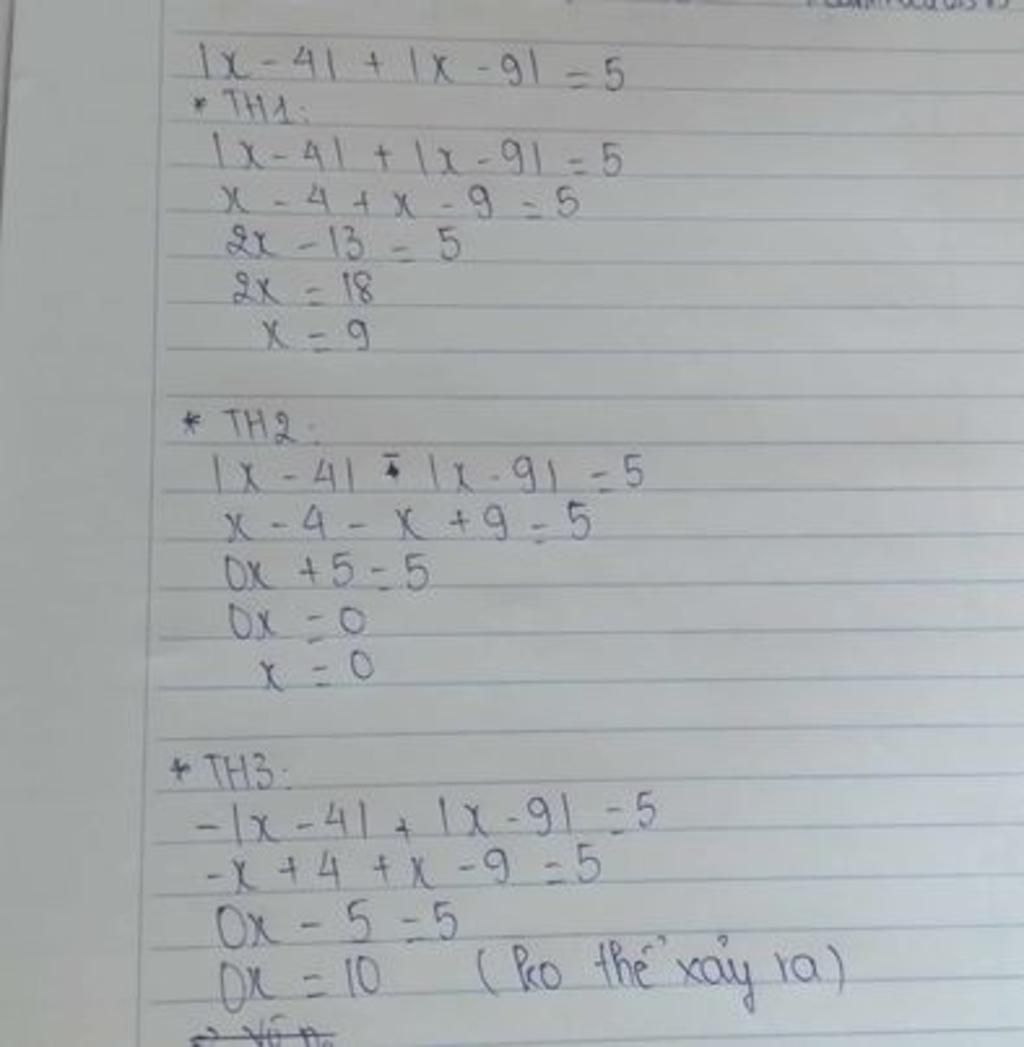 |x - 4| + |x - 9| = 5
* TH1:
|x - 4| + |x - 9| = 5
x - 4 + x - 9 = 5
2x - 13 = 5
2x = 18
x = 9
* TH2:
|x - 4| - |x - 9| = 5
x - 4 - x + 9 = 5
0x + 5 = 5
0x = 0
x = 0
* TH3:
-|x - 4| + |x - 9| = 5
-x + 4 + x - 9 = 5
0x - 5 = 5
0x = 10 (ko thể xảy ra)